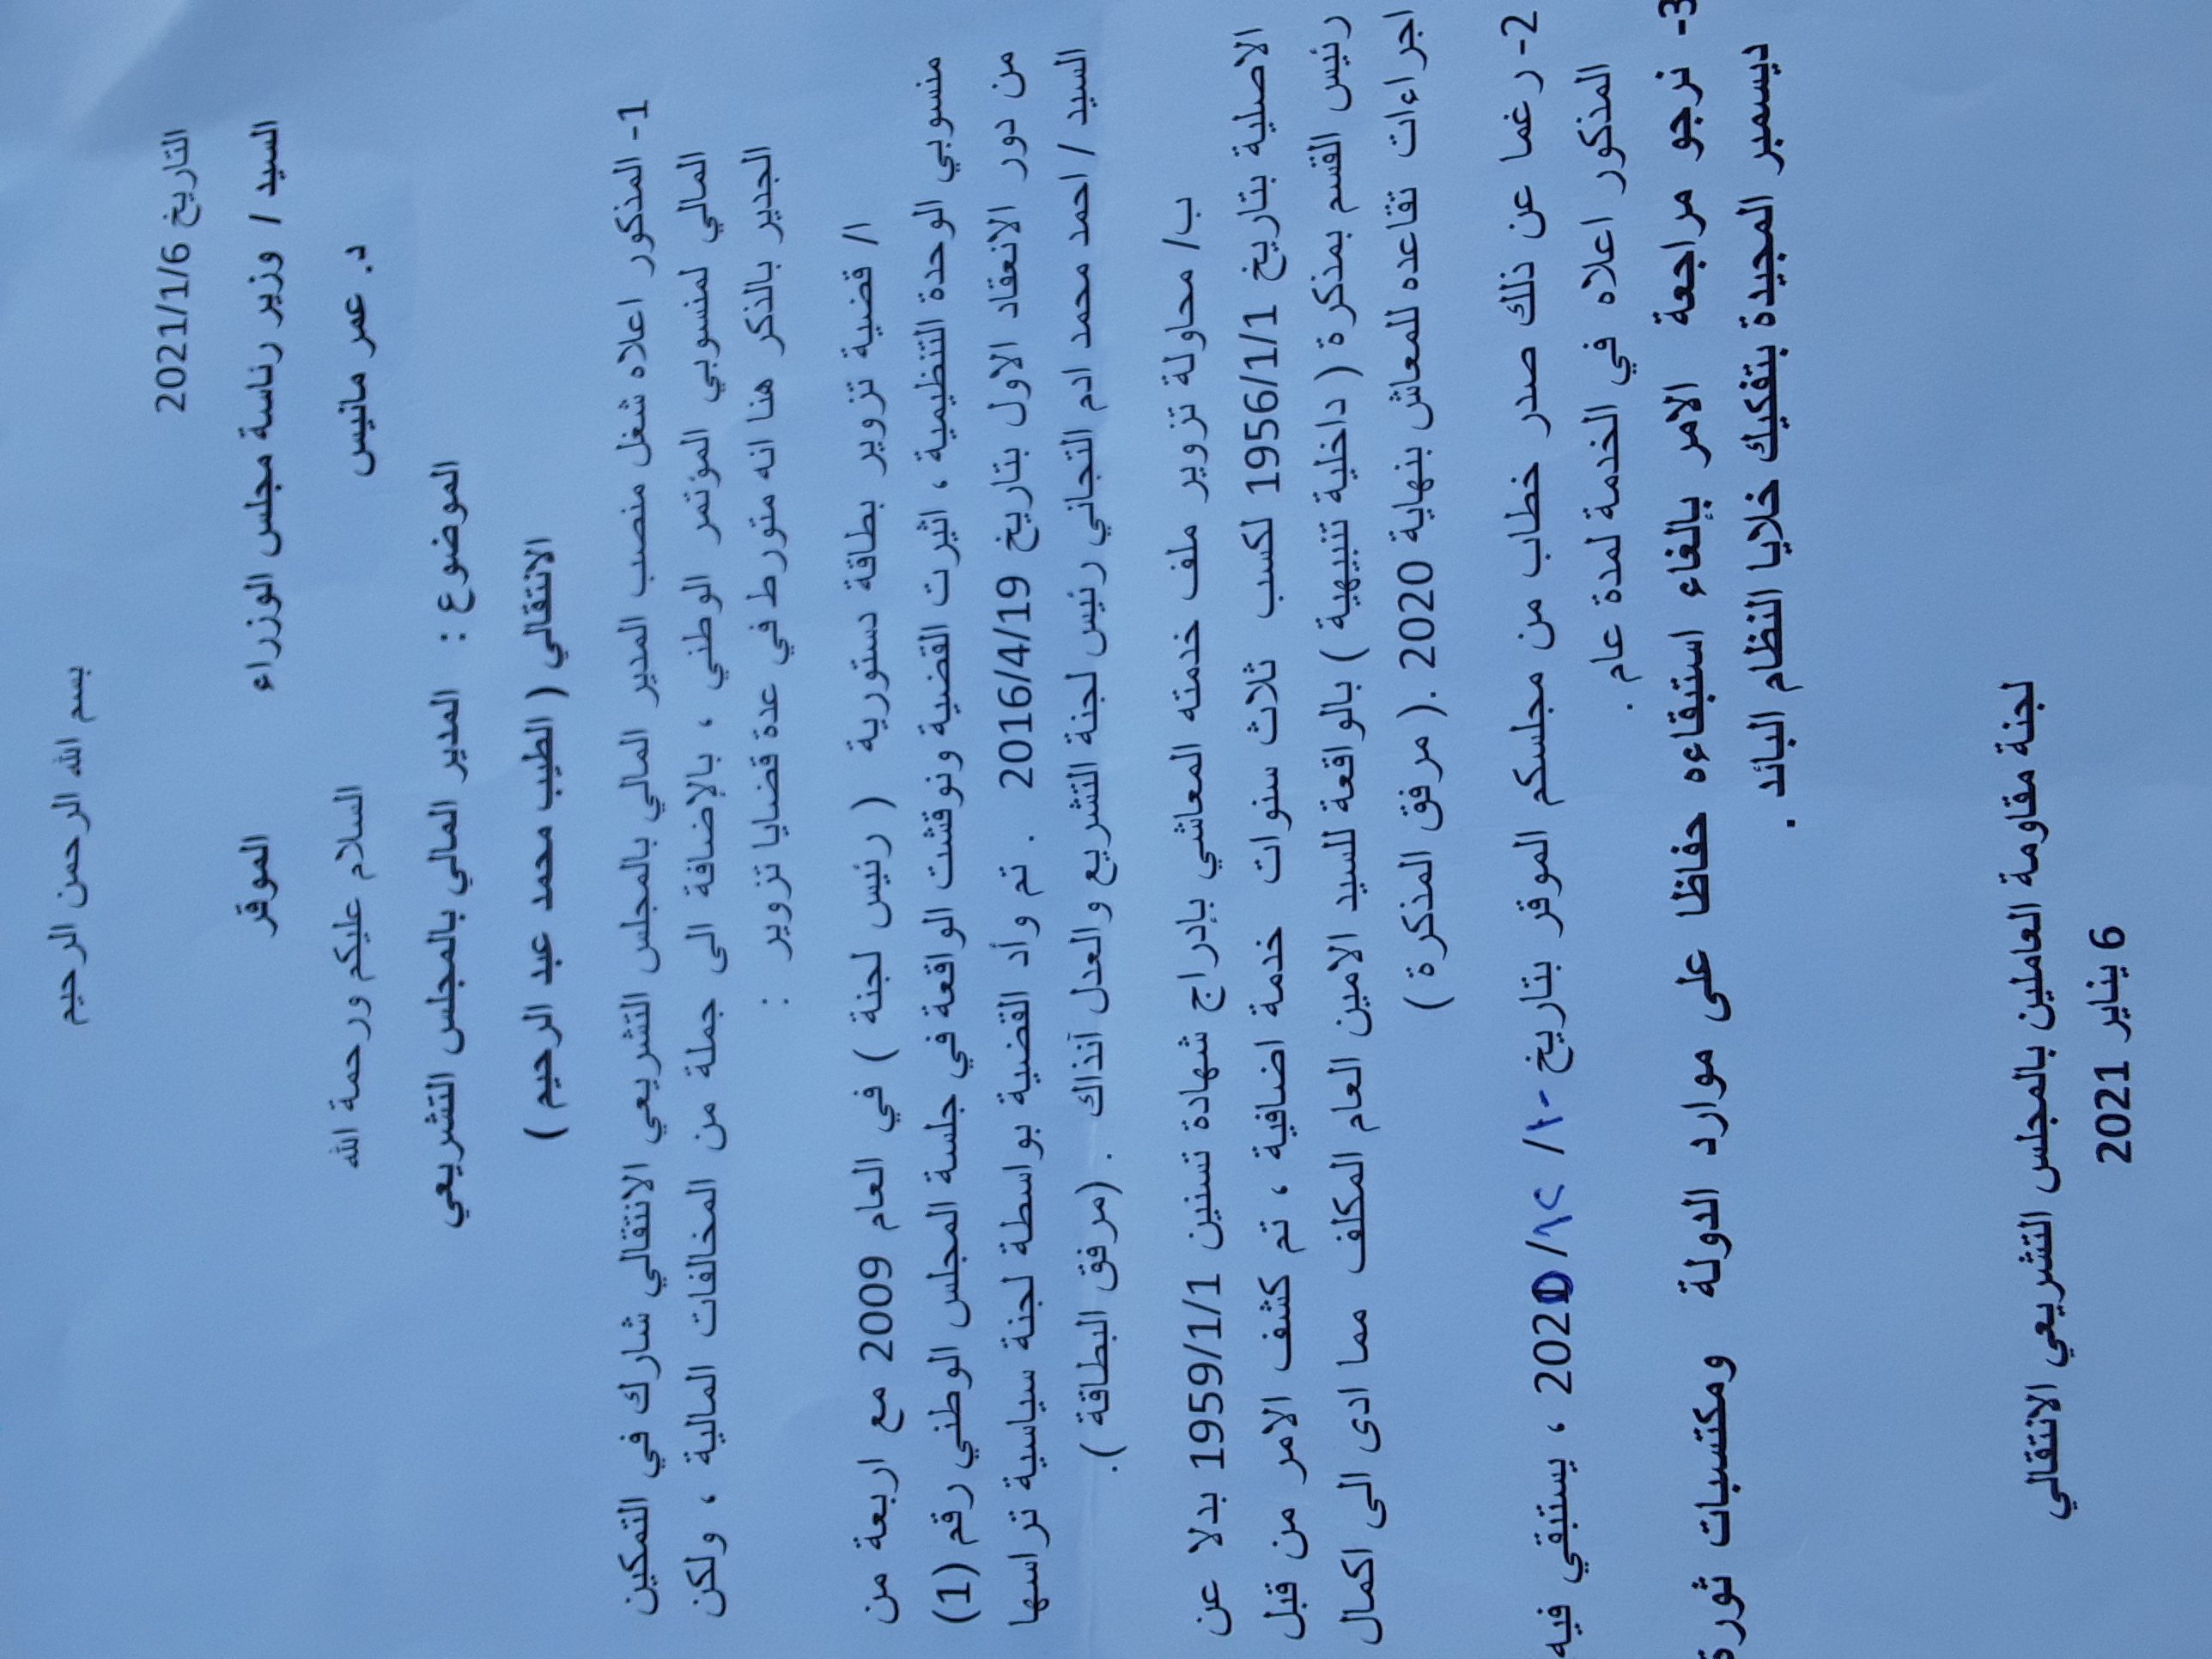 بسم الله الرحمن الرحيم
التاريخ 2021/1/6
السيد / وزير رئاسة مجلس الوزراء الموقر
د. عمر مانيس السلام عليكم ورحمة الله
الموضوع : المدير المالي بالمجلس التشريعي
الانتقالي ( الطيب محمد عبد الرحيم )
1- المذكور اعلاه شغل منصب المدير المالي بالمجلس التشريعي الانتقالي شارك في التمكين
المالي لمنسوبي المؤتمر الوطني ، بالإضافة الى جملة من المخالفات المالية ، ولكن
الجدير بالذكر هنا انه متورط في عدة قضايا تزوير :
ا/ قضية تزوير بطاقة دستورية ( رئيس لجنة ) في العام 2009 مع اربعة من
منسوبي الوحدة التنظيمية ، اثيرت القضية ونوقشت الواقعة في جلسة المجلس الوطني رقم (1)
من دور الانعقاد الاول بتاريخ 2016/4/19 . تم وأد القضية بواسطة لجنة سياسية تراسها
السيد / احمد محمد ادم التجاني رئيس لجنة التشريع والعدل آنذاك . (مرفق البطاقة ).
ب/ محاولة تزوير ملف خدمته المعاشي بإدراج شهادة تسنين 1959/1/1 بدلا عن
الاصلية بتاريخ 1956/1/1 لكسب ثلاث سنوات خدمة اضافية ، تم كشف الامر من قبل
رئيس القسم بمذكرة ( داخلية تنبيهية ) بالواقعة للسيد الامين العام المكلف مما ادى الى اكمال
اجراءات تقاعده للمعاش بنهاية 2020 .( مرفق المذكرة )
2- رغما عن ذلك صدر خطاب من مجلسكم الموقر بتاريخ ١٠/ ١٢/ 2020 ، يستبقي فيه
المذكور اعلاه في الخدمة لمدة عام .
3- نرجو مراجعة الامر بإلغاء استبقاءه حفاظا على موارد الدولة ومكتسبات ثورة
ديسمبر المجيدة بتفكيك خلايا النظام البائد .
لجنة مقاومة العاملين بالمجلس التشريعي الانتقالي
6 يناير 2021